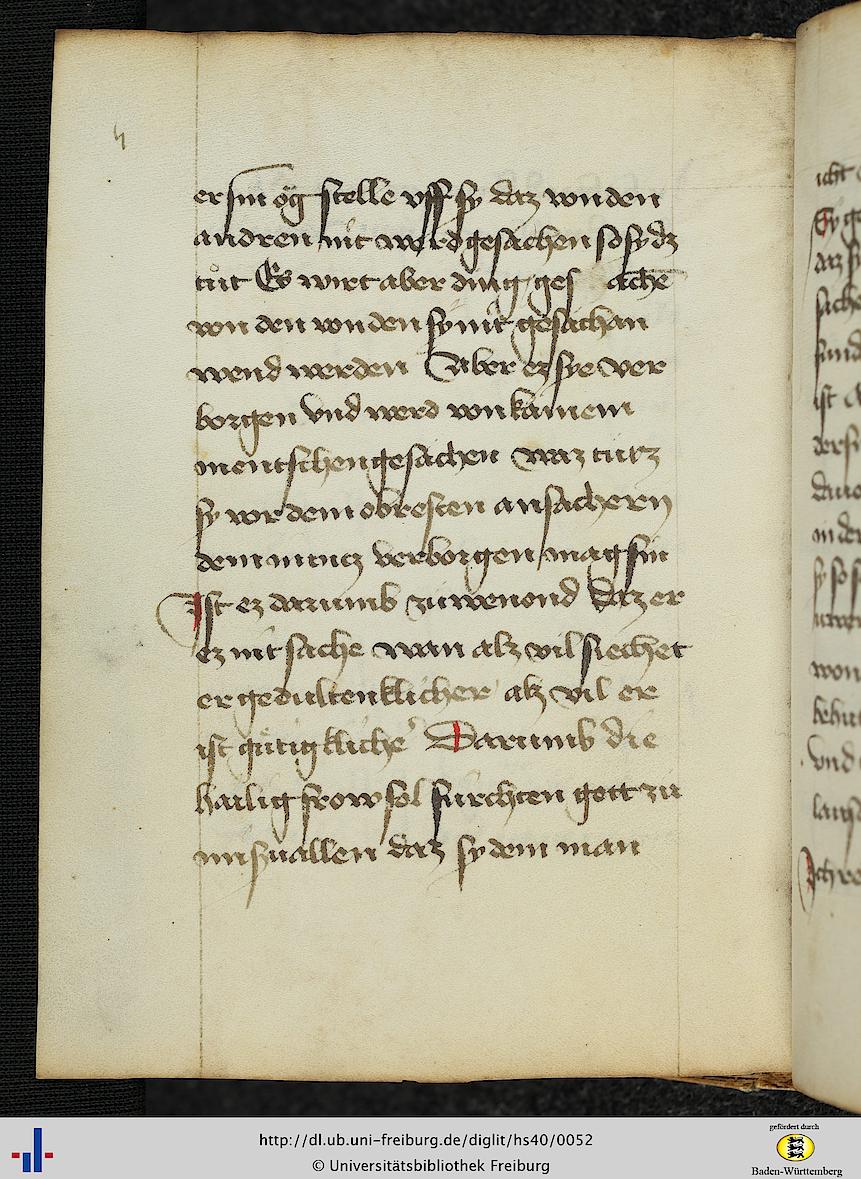 er sin ög stelle vff sy daz von den
andren nit werd gesächen so sy dz
tüt Es wirt aber ding ges ächē
von den von den sy nit gesächan
wend werden Aber ez sye ver
borgen vnd werd von kainem
mentschen gesächen waz tütz
sy vor dem obresten ansächern
dem nüncz verborgen mag sin
Ist ez darumb zu wenond daz er
ez nit sache wan alz vil siechet
er gedultenklicher alz vil er
ist gütigkliche Darumb die
hailig frow sol fürchten gott zu
mißuallen daz sy dem man
http://dl.ub.uni-freiburg.de/diglit/hs40/0052
© Universitätsbibliothek Freiburg
gefördert durch
Baden-Württemberg